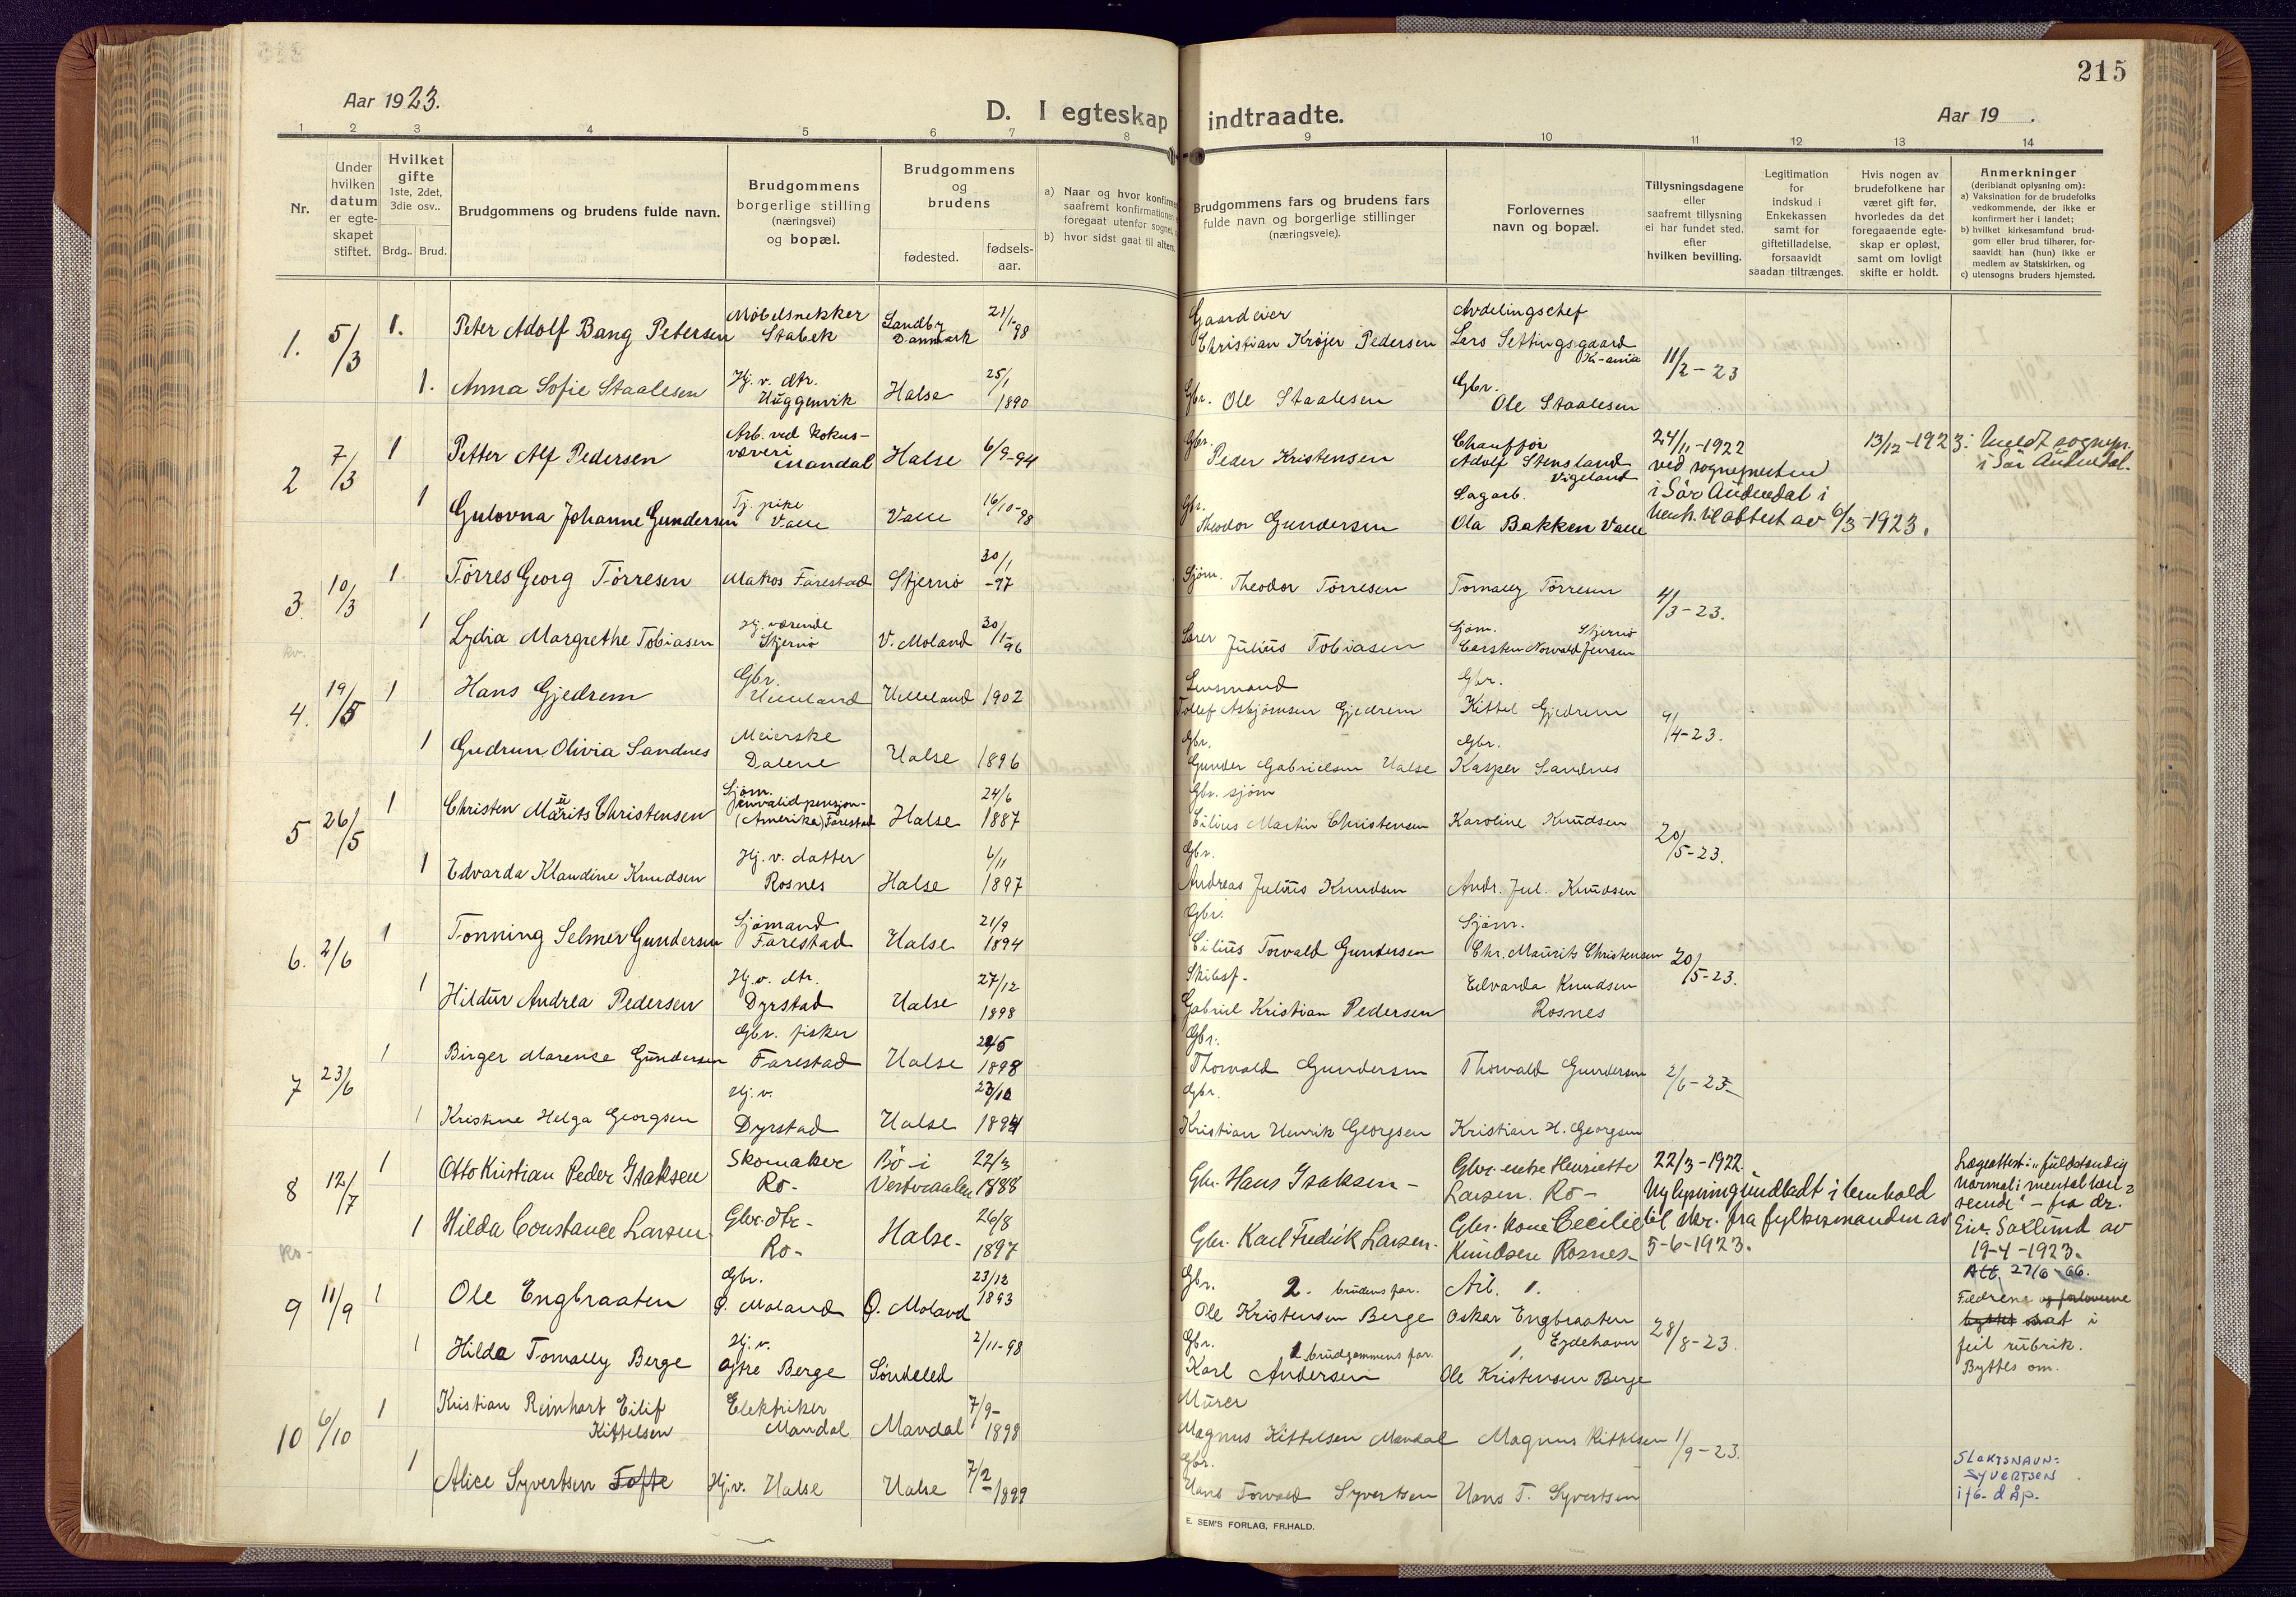 215
Aar 1923.
D. I egteskap indtraadte.
Aar 19 .
1 2 3 4 5 6 7 8 9 10 11 12 13 14
Nr.
Under
hvilken
datum
er egte-
skapet
stiftet.
Hvilket
gifte
1ste, 2det,
3die osv..
Brdg.. Brud.
Brudgommens og brudens fulde navn.
Brudgommens
borgerlige stilling
(næringsvei)
og bopæl.
Brudgommens
og
brudens
fødested.
fødsels-
aar.
a) Naar og hvor konfirme
saafremt konfirmationen
foregaat utenfor sognet,
b) hvor sidst gaat til alters.
Brudgommens fars og brudens fars
fulde navn og borgerlige stillinger
(næringsveie).
Forlovernes
navn og bopæl.
Tillysningsdagene
eller
saafremt tillysning
ei har fundet sted.
efter
hvilken bevilling.
Legitimation
for
indskud i
Enkekassen
samt for
giftetilladelse,
forsaavidt
saadan tiltrænges.
Hvis nogen av
brudefolkene har
været gift før,
hvorledes da det
foregaaende egte-
skap er opløst,
samt om lovligt
skifte er holdt.
Anmerkninger
(deriblandt oplysning om):
a) Vaksination for de brudefolks
vedkommende, der ikke er
konfirmert her i landet;
b) hvilket kirkesamfund brud-
gom eller brud tilhører, for-
saavidt han (hun) ikke er
medlem av Statskirken, og
c) utensogns bruders hjemsted.
1. 5/3 1. Peter Adolf Bang Petersen
Møbelsnekker
Stabek
Landby
Danmark
21/1-98
Gaardeier
Christian Krøjer Pedersen
Avdelingschef
Lars Settingsgaard
Kr-ania
11/2-23
1. Anna Sofie Staalesen
Hj. v. dtr.
Uggenvik
Halse
25/1
1890
Gbr. Ole Staalesen
Gbr.
Ole Staalesen
2 7/3 1 Petter Alf Pedersen
Arb. ved kokus-
væveri
Mandal
Halse
6/9-94
Gbr.
Peder Kristensen
Chauffør
Adolf Stensland
Vigeland
24/11-1922
ved sognepresten
i Sør Audnedal i
13/12-1923: Meldt sognepr.
i Sør Audnedal.
1 Gulovna Johanne Gundersen
Tj. pike
Valle
Valle
16/10-98
Gbr.
Theodor Gundersen
Sagarb.
Ola Bakken Valle
attest av 6/3-1923.
3. 10/3 1 Tørres Georg Tørresen
Matros Farestad
Skjernø
30/1
-97
Sjøm.
Theodor Tørresen
Tomally Tørresen
4/3-23.
1 Lydia Margrethe Tobiasen
Hj. værende
Skjernø
V. Moland
30/1-96
Julius Tobiasen
Sjøm. Skjernø
Carsten Norvald Jensen
kv.
4. 19/5 1 Hans Gjedrem
Gbr.
Helleland
Helleland
1902
Lensmand
Tollef Asbjørnsen Gjedrem
Gbr.
Kittel Gjedrem
9/4-23.
1 Gudrun Olivia Sandnes
Meierske
Dalene
Halse
1896
Gbr.
Gunder Gabrielsen Halse
Gbr.
Kasper Sandnes
5 26/5 1 Christen Maurits Christensen
Sjøm.
invalidpensjon-
(Amerika) Farestad
Halse
24/6
1887
Gbr. sjøm
Cilius Martin Christensen
Karoline Knudsen
20/5-23.
1 Edvarda Klaudine Knudsen
Hj. v. datter
Rosnes
Halse
6/11
1897
Gbr.
Andreas Julius Knudsen
Andr. Jul. Knudsen
6. 2/6 1 Tønning Selmer Gundersen
Sjømand
Farestad
Halse
21/9
1894
Gbr.
Cilius Torvald Gundersen
Sjøm.
Chr. Maurits Christensen
20/5-23.
1 Hildur Andrea Pedersen
Hj. v. dtr.
Dyrstad
Halse
27/12
1898
Skibsf.
Gabriel Kristian Pedersen
Edvarda Knudsen
Rosnes
7 23/6 1 Birger Marense Gundersen
Gbr. fisker
Farestad
Halse
1898
Gbr.
Thorvald Gundersen
Thorvald Gundersen
2/6-23-
1 Kristine Helga Georgsen
Hj. v.
Dyrstad
Halse
23/10
1894
Gbr.
Kristian Henrik Georgsen
Kristian H. Georgsen
8 12/7 1 Otto Kristian Peder Isaksen
Skomaker
Ro-
Bø i
Vesteraalen
22/3
1888
Gbr. Hans Isaksen-
Gbr. enke Henriette
Larsen. Ro-
22/3-1922.
Ny lysning undladt i henhold
til skr. fra fylkesmanden av
5-6-1923.
Lægeattest: "fuldstendig
normal i mental hen-
seende" - fra dr.
Eiv. Saxlund av
19-4-1923.
Att. 27/6-66.
1 Hilda Constance Larsen
Gbr. dtr-
Ro-
Halse-
26/8
1897
Gbr. Karl Fredrik Larsen-
Gbr. kone Cecilie
Knudsen Rosnes-
9 11/9 1 Ole Engbraaten
Gbr.
Ø. Moland
Ø. Moland
23/12
1893
Gbr. 2. brudens far.
Ole Kristensen Berge
Arb. 1.
Oskar Engbraaten
Eydehavn
28/8-23.
Fædrene og forloverne
byttet sat i
feil rubrik.
Byttes om.
1 Hilda Tomally Berge
Hj. v.
Øfre Berge
Søndeled
2/11-98
Gbr. 1 brudgommens far.
Karl Andersen
1.
Ole Kristensen Berge
10 6/10 1 Kristian Reinhart Eilif
Kittelsen
Elektriker
Mandal
Mandal
7/9-
1898
Mürer
Magnus Kittelsen Mandal
Magnus Kittelsen
1/9-23.
1 Alice Syvertsen Tofte
Hj. v. Halse
Halse
7/2-1899
Gbr.
Hans Torvald Syvertsen
Hans T. Syvertsen
SLEKTSNAVN:
SYVERTSEN
ifg. dåp.
E. SEM'S FORLAG, FR.HALD.